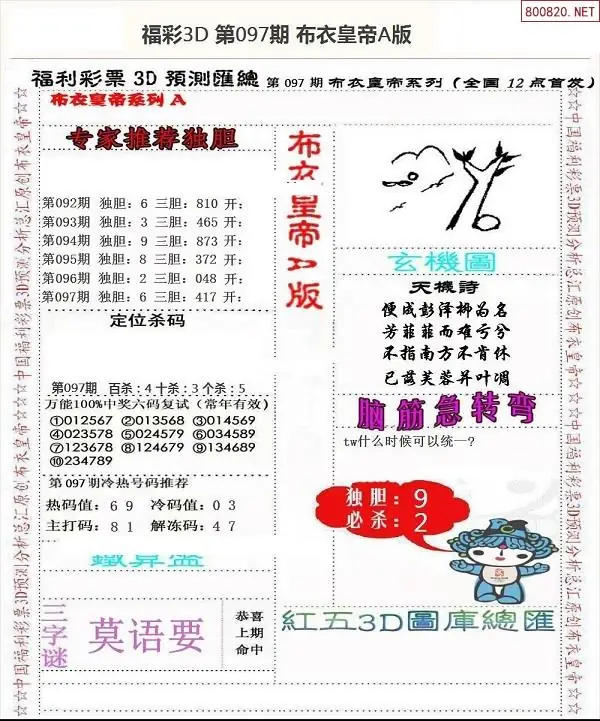 800820.NET
福彩3D 第097期 布衣皇帝A版
福利彩票 3D 預測匯總 第 097 期 布衣皇帝系列 (全国 12 点首发)
布衣皇帝系列 A
专家推荐独胆
第092期 独胆: 6 三胆: 810 开:
第093期 独胆: 3 三胆: 465 开:
第094期 独胆: 9 三胆: 873 开:
第095期 独胆: 8 三胆: 372 开:
第096期 独胆: 2 三胆: 048 开:
第097期 独胆: 6 三胆: 417 开:
定位杀码
第097期 百杀: 4 十杀: 3 个杀: 5
万能100%中奖六码复试 (常年有效)
①012567 ②013568 ③014569
④023578 ⑤024579 ⑥034589
⑦123678 ⑧124679 ⑨134689
⑩234789
第 097 期冷热号码推荐
热码值: 6 9 冷码值: 0 3
主打码: 8 1 解冻码: 4 7
鐵算盆
三字谜
莫语要
恭喜
上期
命中
布衣皇帝A版
玄機圖
天機詩
便成彭泽柳为名
芳菲菲而难亏兮
不指南方不肯休
已落芙蓉并叶凋
脑筋急转弯
tw什么时候可以统一?
独胆: 9
必杀: 2
紅五3D圖庫總匯
☆☆中国福利彩票3D预测分析总汇原创布衣皇帝☆☆
☆☆中国福利彩票3D预测分析总汇原创布衣皇帝☆☆